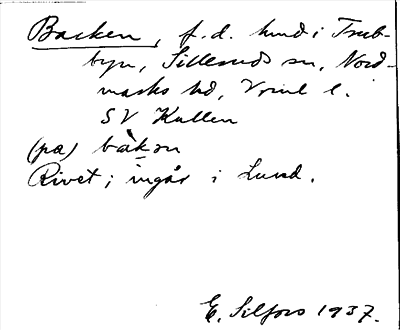 Backen, f.d. lund i Trub-
byn, Silleruds sn, Nord-
marks hd, Vrml l.
SV Kullen
(pa) bàkn
Rivet; ingår i Lund.
E. Silfors 1937.